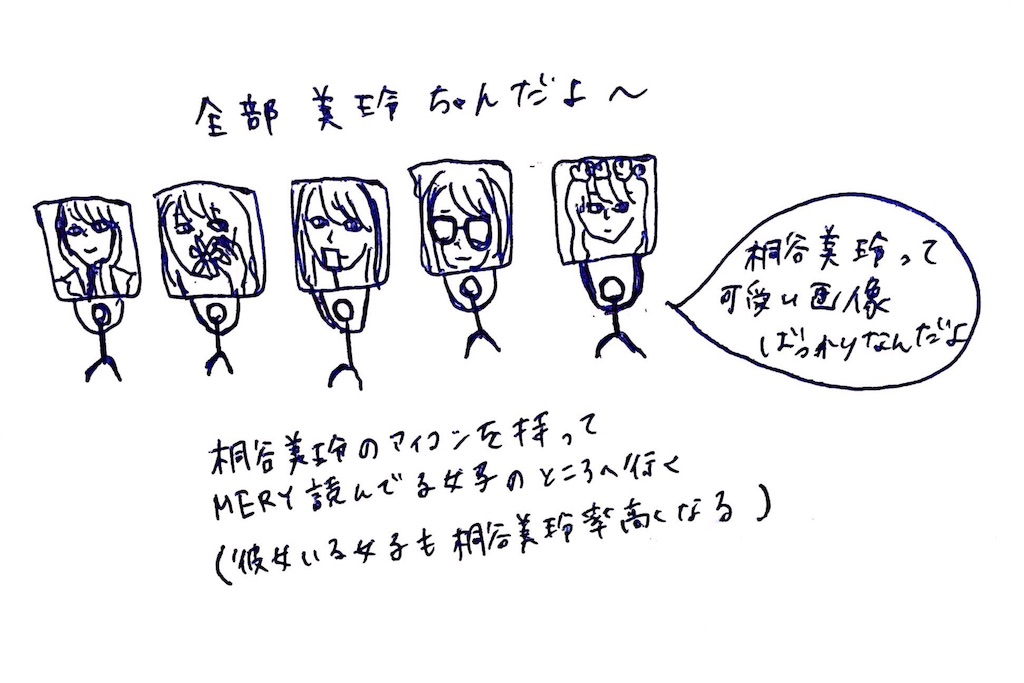 全部 美玲 ちゃんだよ〜
桐谷美玲って
可愛い画像
ばっかりなんだよ
桐谷美玲のアイコンを持って
MERY読んでる女子のところへ行く
(彼女いる女子も桐谷美玲率高くなる)